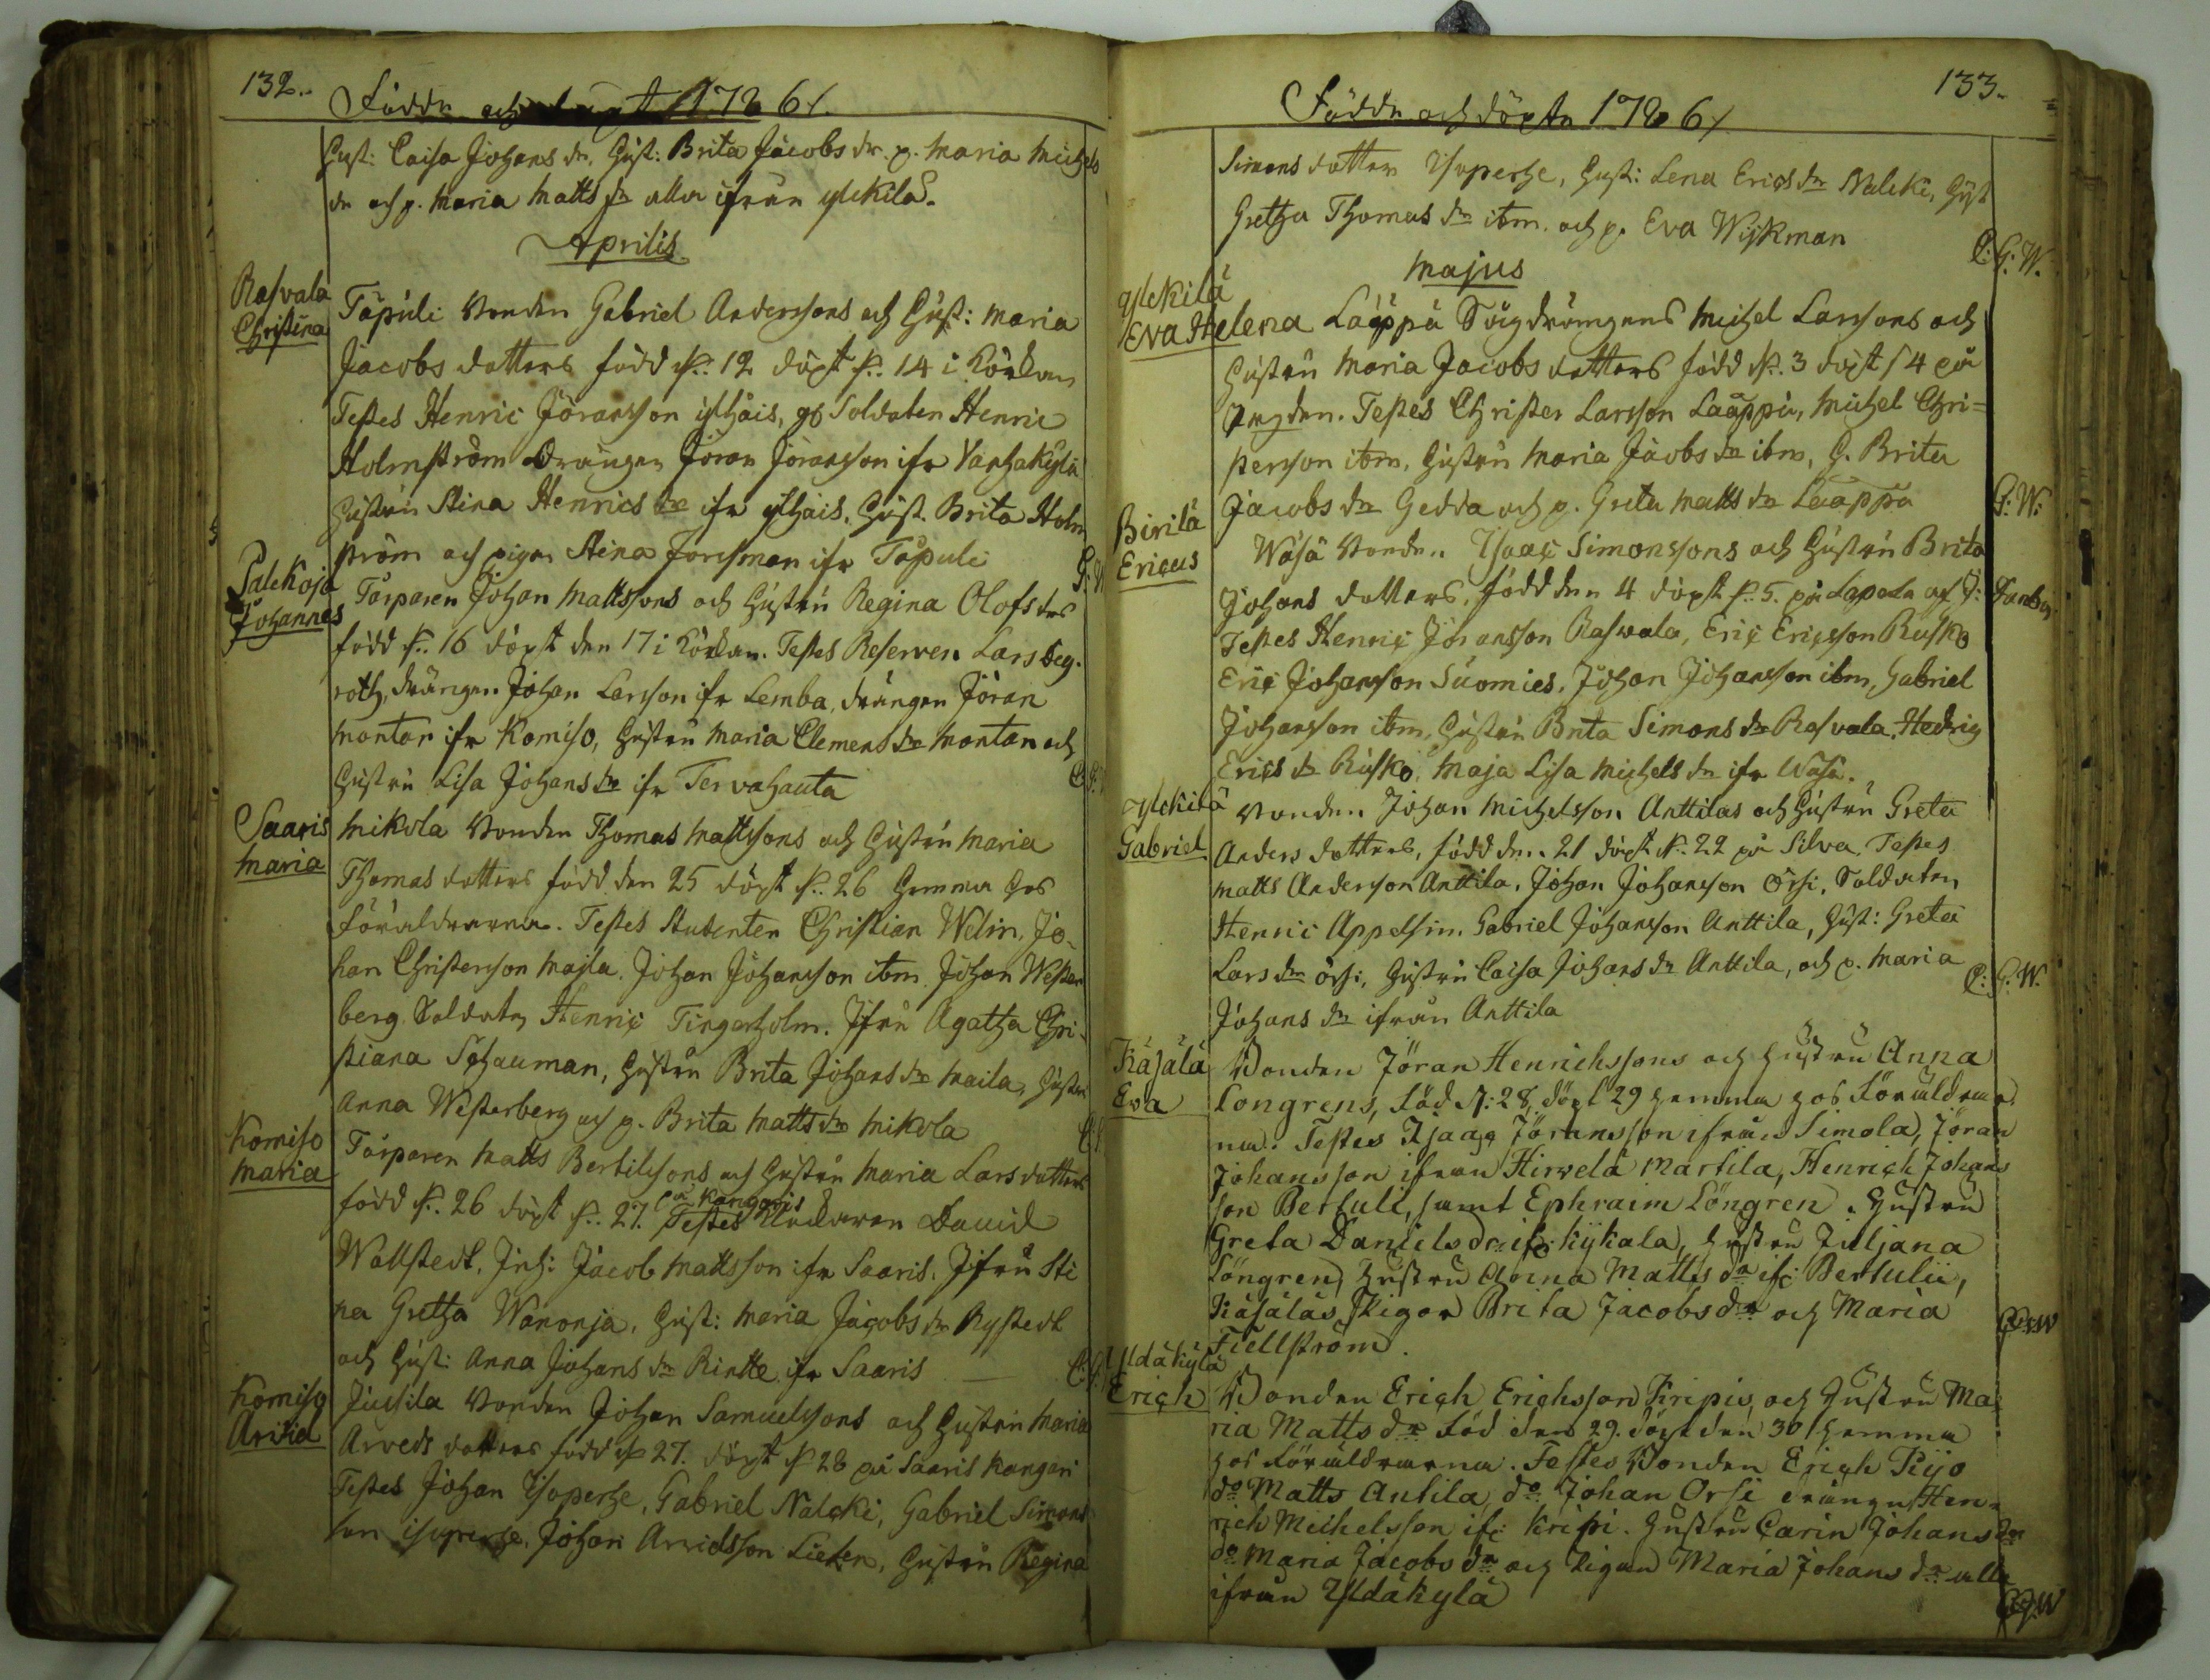 132.
Födde och döpte 1786/.
Hust: Caisa Johans dr. Hust: Brita Jacobs dr. p. Maria Michels
dr och p. Maria Matts dr alla ifrån ylckilä.
Aprilis
Rasvala
Christina
Tapuli Bonden Gabriel Anderssons och Hust: Maria
Jacobs dotters född d. 12 döpt d. 14 i Kyrkan
Testes Henric Jöransson ylhäis, gb Soldaten Henric
Holmström Drängen Jöran Jöransson ifr Vanhakylä
Hustru Stina Henrics dr ifr ylhäis, Hust. Brita Holm
ström och pigan Stina Forssman ifr Tapuli
Palckoja
Johannes
Torparen Johan Mattssons och Hustru Regina Olofs drs
född d. 16 döpt den 17 i Kyrkan. Testes Reserven Lars Seg-
roth, drängen Johan Larsson ifr Lemba, drängen Jöran
Montan ifr Komiso, Hustru Maria Clemens dr Montan och
Hustru Lisa Johans dr ifr Tervahauta
Saaris
Maria
Mikola Bonden Thomas Mattssons och Hustru Maria
Thomas dotters född den 25 döpt d. 26 hemma hos
Föräldrarna. Testes Studenten Christian Welin, Jo-
han Christersson Majla, Johan Johansson ibm. Johan Wester
berg Soldaten Henric Tingerholm. Jfru Agatha Chri-
stiana Schauman, Hustru Brita Johans dr Maila, Hustru
Anna Westerberg och p. Brita Matts dr Mikola
Komiso
Maria
Torparen Matts Bertilssons och Hustru Maria Lars dotters
född d. 26 döpt d. 27. på Kangaris Testes Klockaren David
Wallstedt, Inh: Jacob Mattsson ifr Saaris, Jfru Sti
na Gretha Wanonja, Hust: Maria Jacobs dr Rystedt
och Hust: Anna Johans dr Rintte ifr Saaris
Komiso
Arvid
Jussila Bonden Johan Samuelssons och Hustru Maria
Arveds dotters född d 27. döpt d 28 på Saaris Kangari
Testes Johan Isoperhe, Gabriel Nalcki, Gabriel Simons
son isoperhe, Johan Arvidsson Lieten, Hustru Regina
133.
Födde och döpte 1786/
Simons dotter Isoperhe, Hust: Lena Erics dr Nalcki, Hust
Gretha Thomas dr ibm. och p. Eva Wijkman
C: G: W.
Majus
ylckilä
Eva Helena
Lääppä Michel Larssons och
Hustru Maria Jacobs dotters född d. 3 döpt d 4 på
Testes Christer Larsson Lääppä, Michel Chri=
stersson ibm, Hustru Maria Jacobs dr ibm, H. Brita
Jacobs dr Gedda och p. Greta Matts dr Lääppä
G: W:
Birilä
Ericus
Wäsä Bonden Isaac Simonssons och Hustru Brita
Johans dotters, född den 4 döpt d. 5. på Lapola af J:
Testes Henric Jöransson Raswala, Eric Ericsson Rusko
Eric Johansson Suomies, Johan Johansson ibm, Gabriel
Johansson ibm, Hustru Brita Simons dr Rasvala, Hedvig
Erics dr Rusko, Maja Lisa Michels dr ifr Wäsä.
ylckilä
Gabriel
Bonden Johan Michelsson Anttilas och Hustru Greta
Anders dotters, född den 21 döpt d. 22 på Silva. Testes
Matts Andersson Anttila, Johan Johansson Orsi, Soldaten
Henric Appelsin, Gabriel Johansson Anttila, Hust: Greta
Lars dr orsi, Hustru Caisa Johans dr Anttila, och p. Maria
C: G: W.
Johans dr ifrån Anttila
Käjälä
Eva
Bonden Jöran Henrichssons och hustru Anna
Löngrens, föd d: 28, döpt 29 hemma hos Föräldrar
na. Testes Isaac Jöransson ifrån Simola, Jöran
Johansson ifrån Hirvelä Martila, Henrich Johans
son Bertuli, samt Ephraim Löngren. Hustru
Greta Daniels dr ifr: kykala, hustru Juljana
Löngren, Hustru Anna Matts dr ifr: Bertulii,
Käjäläs Pigor Brita Jacobs dr och Maria
Fiellström.
Yldäkylä
Erich
Bonden Erich Erichsson Kripis, och Hustru Ma
ria Matts dr föd den 29. döpt den 30 hemma
hos Föräldrarna. Testes Bonden Erich Kijo
do Matts Antila, do Johan Orsi drängen Hen-
rich Michelsson ifr: Kripi. Hustru Carin Johans dr
do Maria Jacobs dr och Pigan Maria Johans dr alla
ifrån Yldäkylä